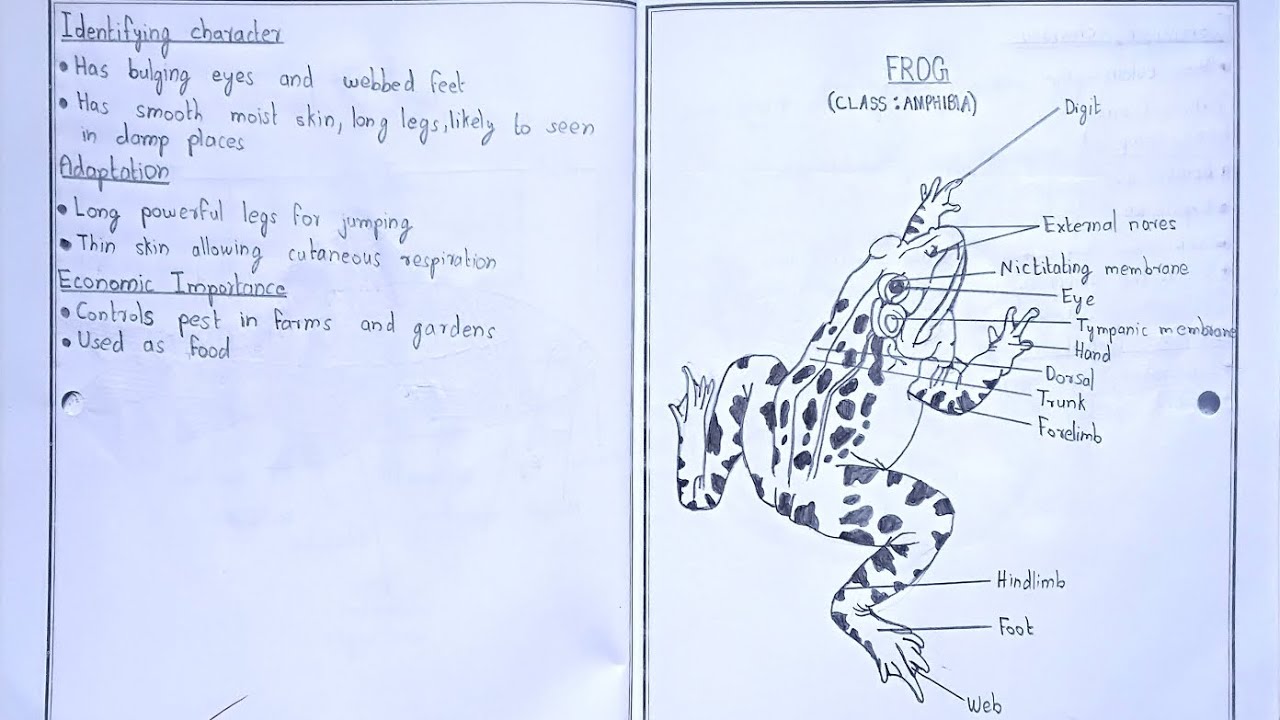 Identifying character
• Has bulging eyes and webbed feet
• Has smooth moist skin, long legs, likely to seen
in damp places
Adaptation
• Long powerful legs for jumping
• Thin skin allowing cutaneous respiration
Economic Importance
• Controls pest in farms and gardens
• Used as food
FROG
(CLASS : AMPHIBIA)
Digit
External nares
Nictitating membrane
Eye
Tympanic membrane
Hand
Dorsal
Trunk
Forelimb
Hindlimb
Foot
Web